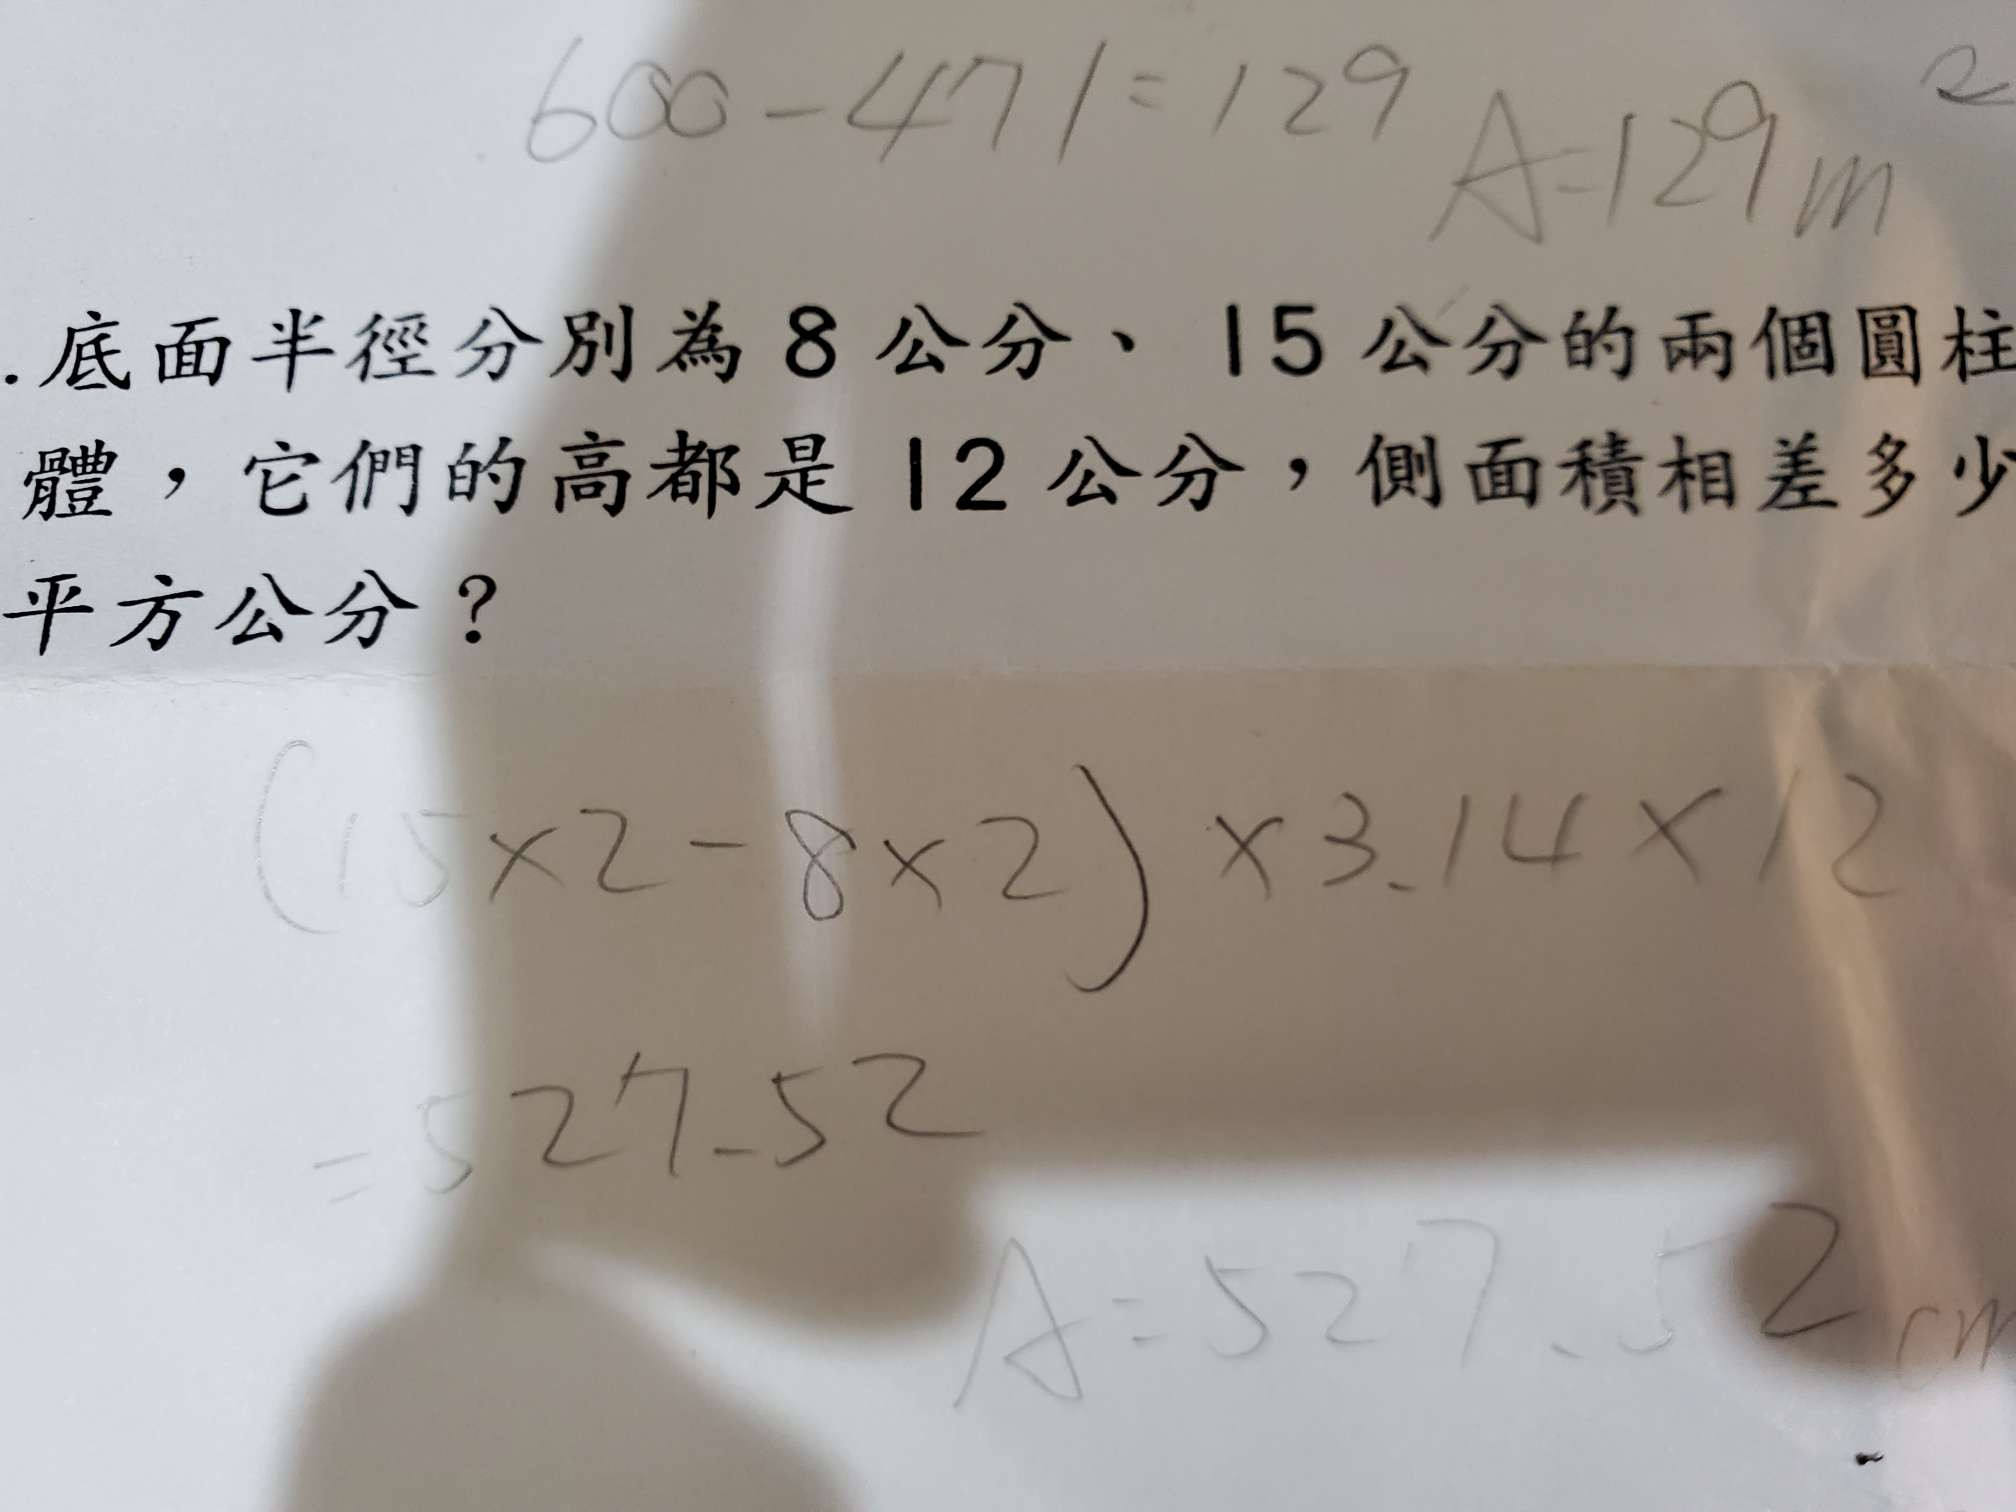 600-471=129
A=129m²
.底面半徑分別為8公分、15公分的兩個圓柱
體，它們的高都是12公分，側面積相差多少
平方公分？
(15×2-8×2)×3.14×12
=527.52
A=527.52cm